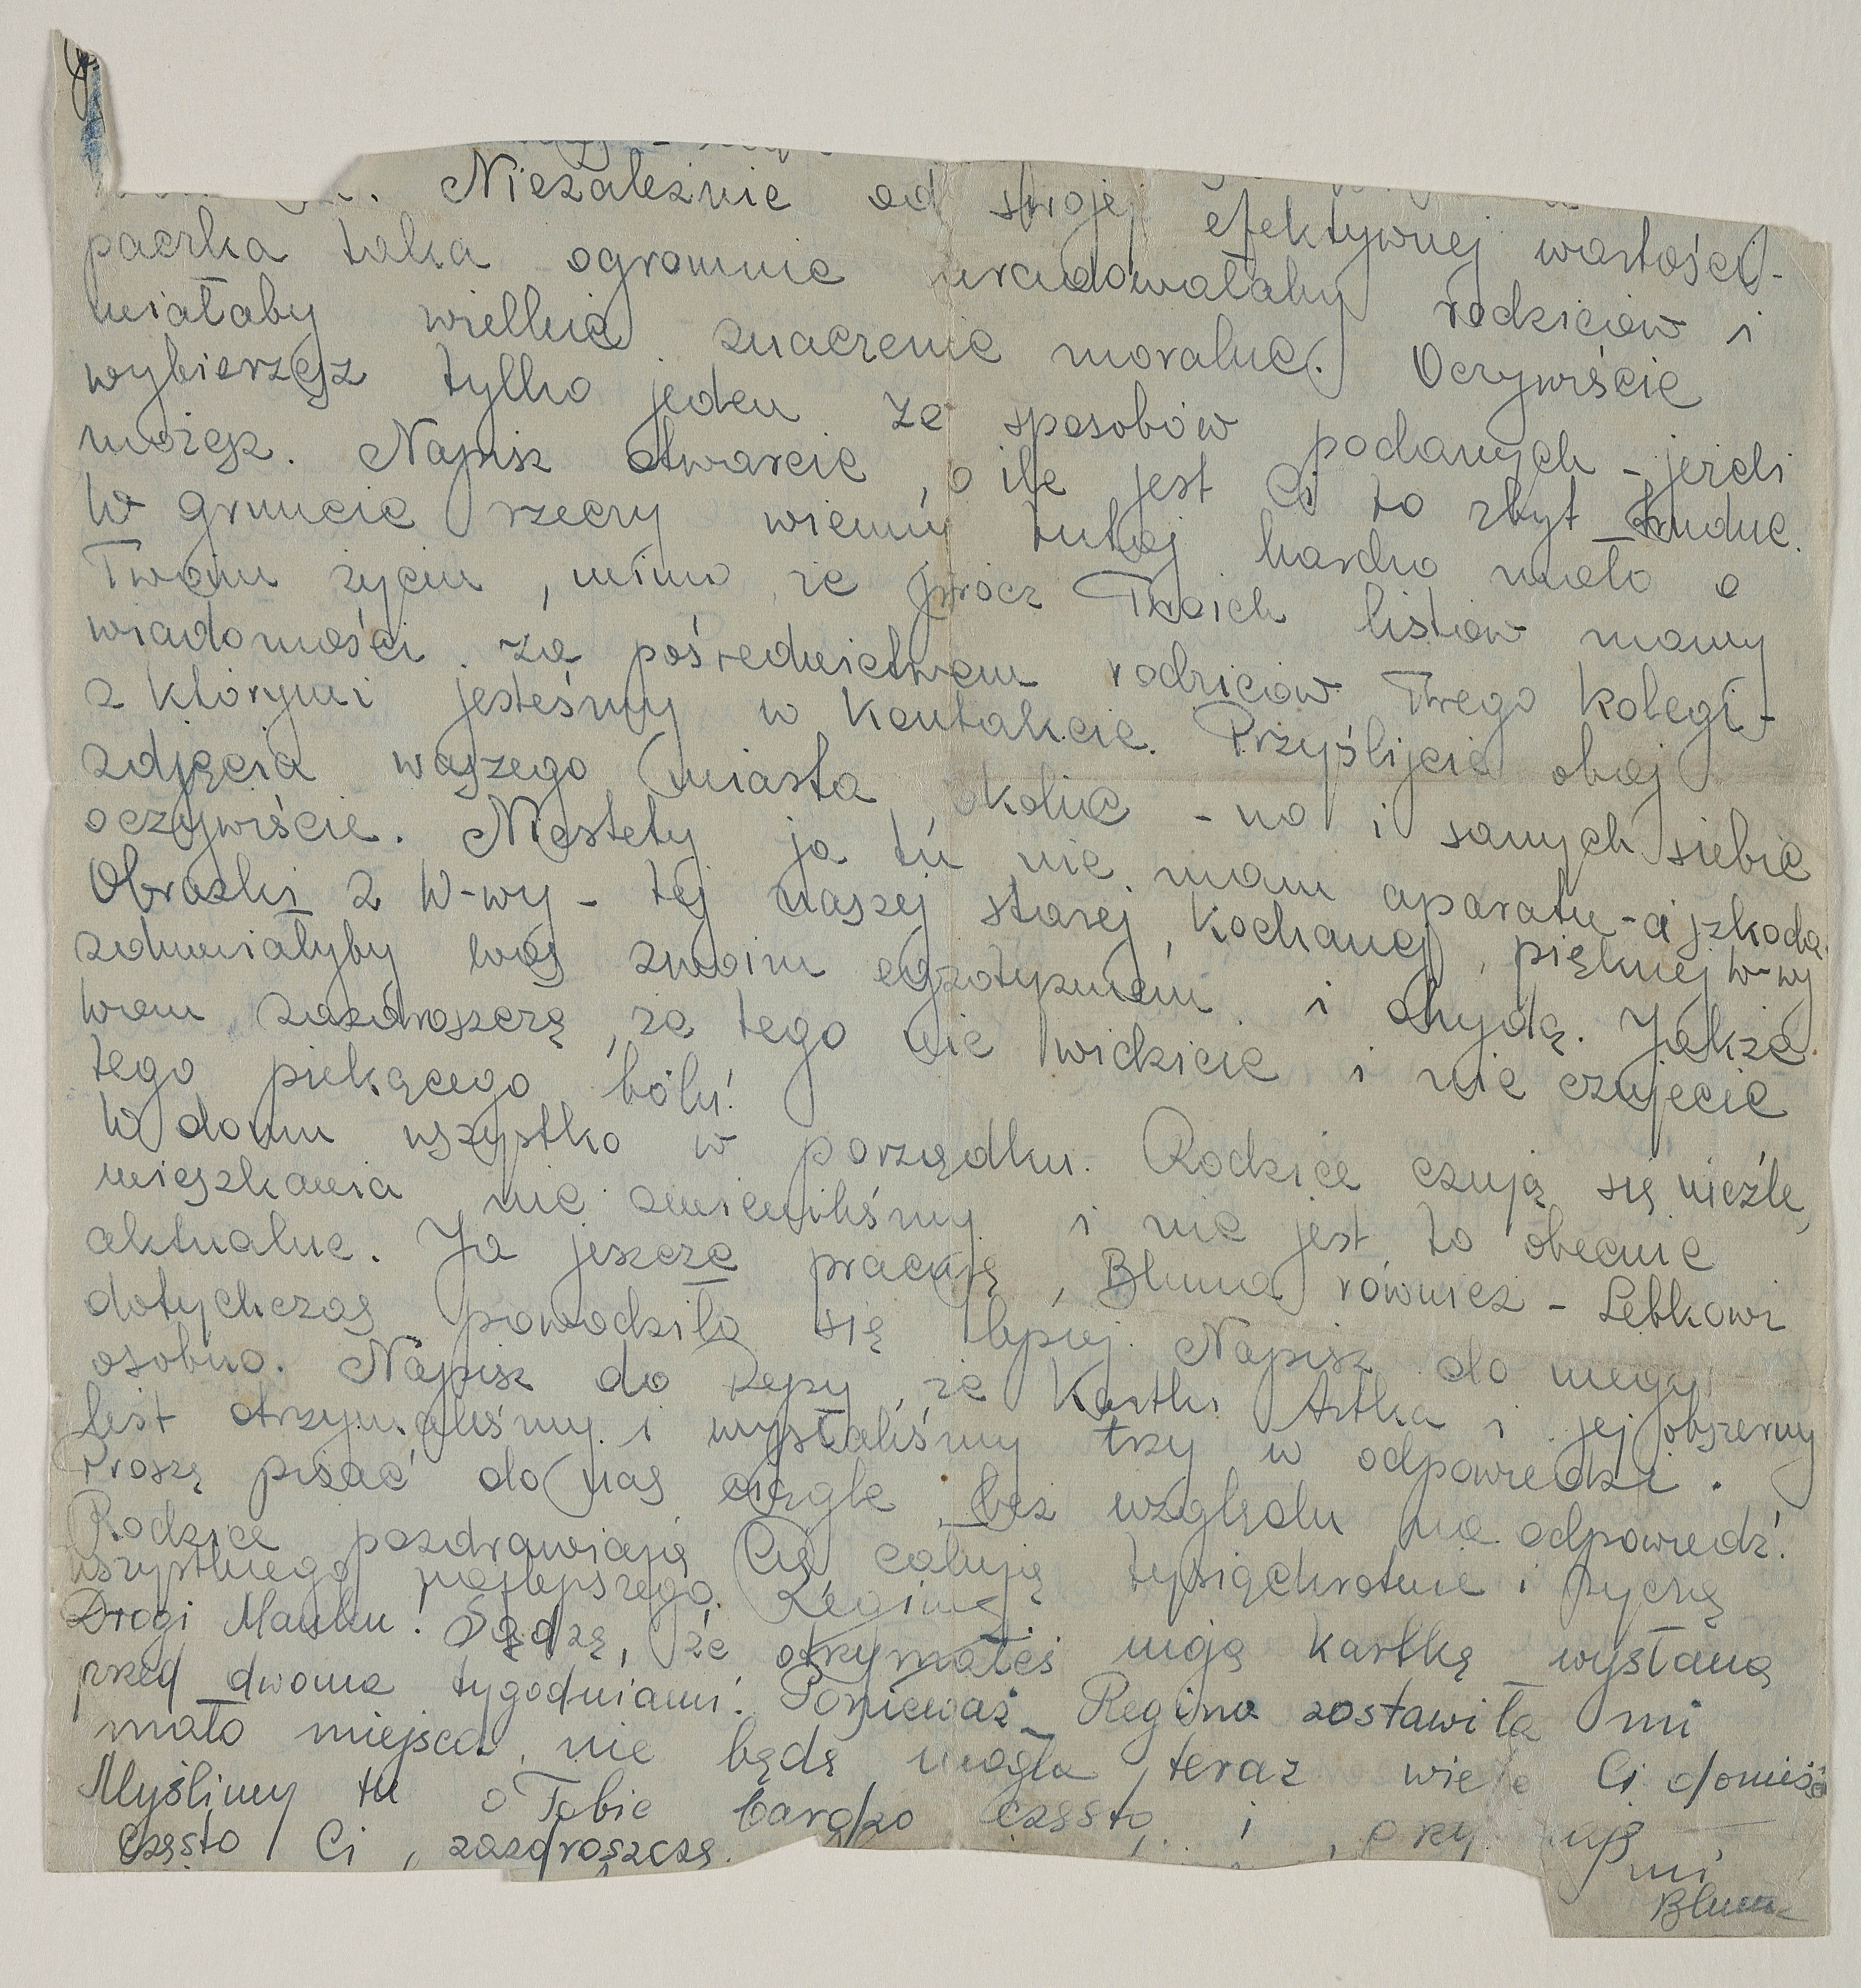 Niezależnie od swojej efektywnej wartości -
paczka taka ogromnie uradowałaby rodziców i
miałaby wielkie znaczenie moralne. Oczywiście
wybierzesz tylko jeden ze sposobów podanych - jeżeli
możesz. Napisz otwarcie, o ile jest Ci to zbyt trudne.
W gruncie rzeczy wiemy tutaj bardzo mało o
Twoim życiu, mimo, że prócz Twoich listów mamy
wiadomości za pośrednictwem rodziców Twego kolegi -
z którymi jesteśmy w kontakcie. Przyślijcie obaj
zdjęcia waszego miasta okolic - no i samych siebie
oczywiście. Niestety ja tu nie mam aparatu - a szkoda.
Obrazki z W-wy - tej naszej starej, kochanej, pięknej W-wy
zdumiałyby was swoim egzotyzmem i ohydą. Jakże
wam zazdroszczę, że tego nie widzicie i nie czujecie
tego piekącego bólu!
W domu wszystko w porządku. Rodzice czują się nieźle,
mieszkania nie zmieniliśmy i nie jest to obecnie
aktualne. Ja jeszcze pracuję, Bluma również - Lebkowi
dotychczas powodziło się lepiej. Napisz do niego
osobno. Napisz do Repy, że kartki Artka i jej obszerny
list otrzymaliśmy i wysłaliśmy trzy w odpowiedzi.
Proszę pisać do nas ciągle bez względu na odpowiedź.
Rodzice pozdrawiają Cię całują tysiąckrotnie i życzą
wszystkiego najlepszego. Regina
Drogi Mańku! Sądzę, że otrzymałeś moją kartkę wysłaną
przed dwoma tygodniami. Ponieważ Regina zostawiła mi
mało miejsca, nie będę mogła teraz wiele Ci donieść
Myślimy tu o Tobie bardzo często i
często Ci zazdroszczę.
mi
Bluma